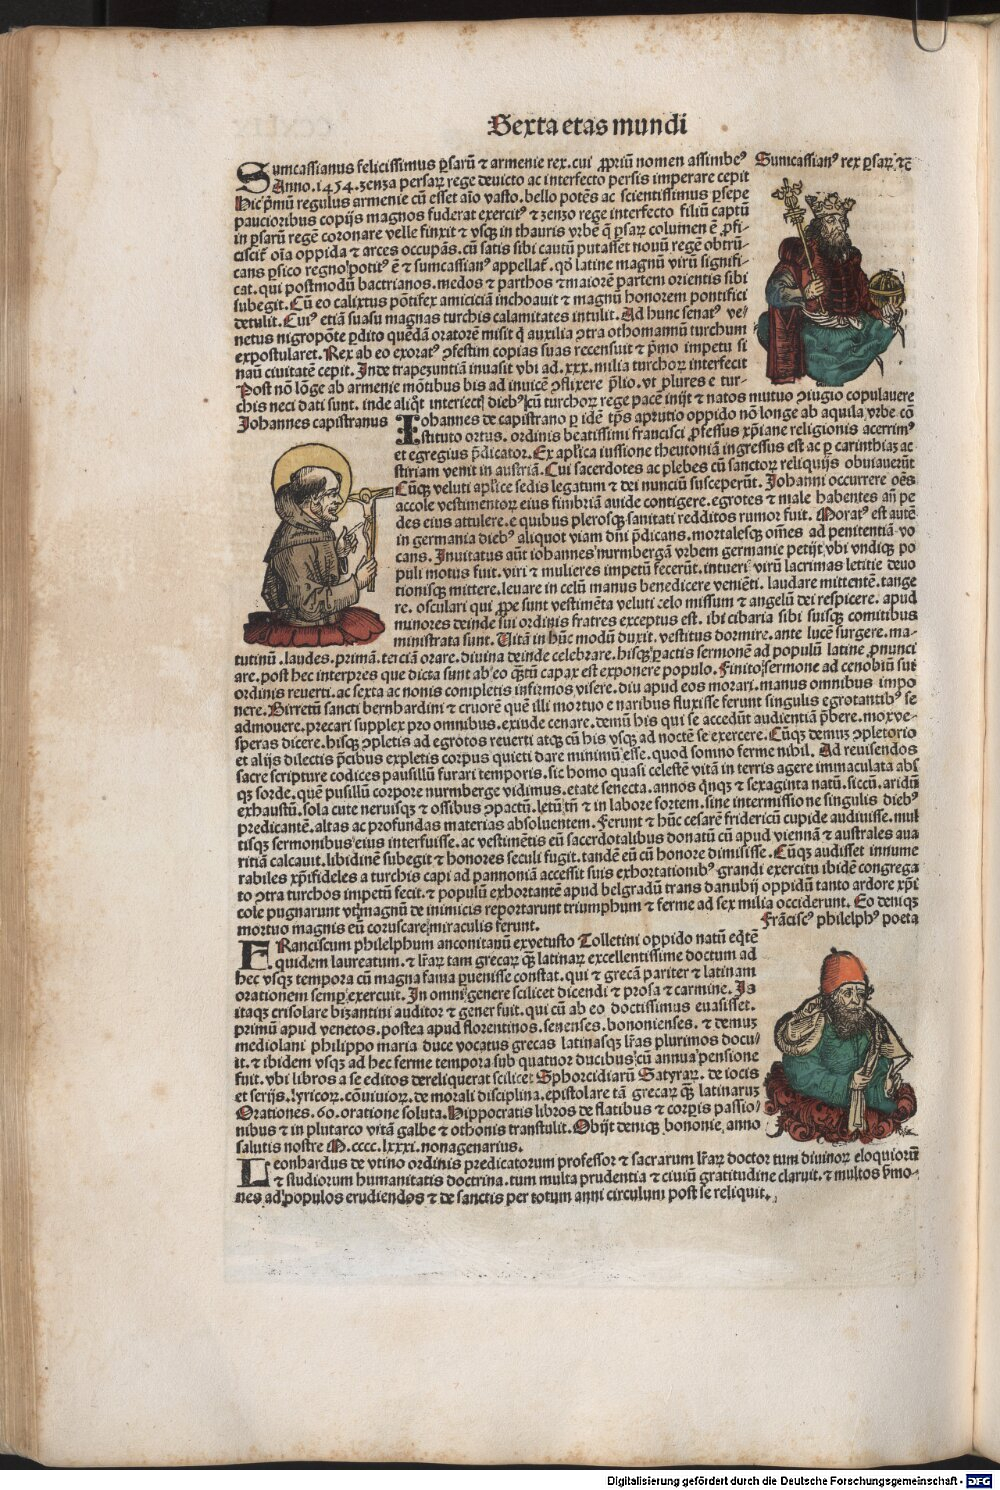 Sexta etas mundi
Sumcassianus felicissimus ꝑsarũ ⁊ armenie rex. cui ꝓpriũ nomen assimbeꝰ
Sumcassianꝰ rex ꝑsaꝝ ⁊c̃
Anno. 1454. zenza persaꝝ rege deuicto ac interfecto persis imperare cepit
Hic p̃mũ regulus armenie cũ esset aĩo vasto. bello potẽs ac scientissimus ꝑsepe
paucioribus copijs magnos fuderat exercitꝰ ⁊ zenzo rege interfecto filiũ captũ
in ꝑsarũ regẽ coronare velle finxit ⁊ vsqꝫ in thauris vrbẽ q̃ ꝑsaꝝ columen ẽ ꝓfi-
ciscit̃ oĩa oppida ⁊ arces occupãs. cũ satis sibi cautũ putasset nouũ regẽ obtrũ-
cans ꝑsico regno potitꝰ ẽ ⁊ sumcassianꝰ appellat̃. qð latine magnũ virũ signifi-
cat. qui postmodũ bactrianos. medos ⁊ parthos ⁊ maiorẽ partem orientis sibi
subegit. Cũ eo calixtus põtifex amiciciã inchoauit ⁊ magnũ honorem pontifici
detulit. Cuiꝰ etiã suasu magnas turchis calamitates intulit. Ad hunc senatꝰ ve-
netus nigropõte ꝑdito quẽdã oratorẽ misit q̃ auxilia ꝯtra othomannũ turchum
expostularet. Rex ab eo exoratꝰ ꝯfestim copias suas recensuit ⁊ p̃mo impetu si
nau ciuitatẽ cepit. Inde trapezuntiã inuasit vbi ad. xxx. milia turchoꝝ interfecit
Post nõ lõge ab armenie mõtibus bis ad inuicẽ ꝯflixere p̃lio. vt plures e tur-
chis neci dati sunt. inde aliq̃t interiect̃ diebꝰ cũ turchoꝝ rege pacẽ inijt ⁊ natos mutuo ꝯiugio copulauere
Johannes capistranus
Johannes de capistrano ꝑ idẽ tp̃s aprutio oppido nõ longe ab aquila vrbe cõ
stituto ortus. ordinis beatissimi francisci ꝓfessus xp̃iane religionis acerrimꝰ
et egregius p̃dicator. Ex apl̃ica iussione theutoniã ingressus est ac ꝑ carinthiaꝫ ac
stiriam venit in austriã. Cui sacerdotes ac plebes cũ sanctoꝝ reliquijs obuiauerũt
Cũqꝫ veluti apl̃ice sedis legatum ⁊ dei nunciũ susceperũt. Johanni occurrere oẽs
accole vestimentoꝝ eius fimbriã auide contigere. egrotes ⁊ male habentes añ pe
des eius attulere. e quibus plerosqꝫ sanitati redditos rumor fuit. Moratꝰ est autẽ
in germania diebꝰ aliquot viam dñi p̃dicans. mortalesqꝫ om̃es ad penitentiã vo
cans. Inuitatus aũt iohannes nurmbergã vrbem germanie petijt vbi vndiqꝫ po
puli motus fuit. viri ⁊ mulieres impetũ fecerũt. intueri virũ lacrimas letitie deuo
tionisqꝫ mittere. leuare in celũ manus benedicere veniẽti. laudare mittentẽ. tange
re. osculari qui ꝓpe sunt vestimẽta veluti celo missum ⁊ angelũ dei respicere. apud
minores deinde sui ordinis fratres exceptus est. ibi cibaria sibi suisqꝫ comitibus
ministrata sunt. Uitã in hũc modũ duxit. vestitus dormire. ante lucẽ surgere. ma-
tutinũ. laudes. primã. terciã orare. diuina deinde celebrare. hisqꝫ ꝑactis sermonẽ ad populũ latine ꝓnunci
are. post hec interpres que dicta sunt ab eo q̃tũ capax est exponere populo. Finito sermone ad cenobiũ sui
ordinis reuerti. ac sexta ac nonis completis infirmos visere. diu apud eos morari. manus omnibus impo
nere. Birretũ sancti bernhardini ⁊ cruorẽ quẽ illi mortuo e naribus fluxisse ferunt singulis egrotantibꝰ se
admouere. precari supplex pro omnibus. exinde cenare. demũ his qui se accedũt audientiã p̃bere. mox ve-
speras dicere. hisqꝫ ꝯpletis ad egrotos reuerti atqꝫ cũ his vsqꝫ ad noctẽ se exercere. Cũqꝫ demuꝫ ꝯpletorio
et alijs dilectis p̃cibus expletis corpus quieti dare minimũ esse. quod somno ferme nihil. Ad reuisendos
sacre scripture codices pausillũ furari temporis. sic homo quasi celestẽ vitã in terris agere immaculata abs
qꝫ sorde. quẽ pusillũ corpore nurmberge vidimus. etate senecta. annos q̃nqꝫ ⁊ sexaginta natũ. siccũ. aridũ
exhaustũ. sola cute neruisqꝫ ⁊ ossibus ꝯpactũ. letũ tñ ⁊ in labore fortem. sine intermissione singulis diebꝰ
predicantẽ. altas ac profundas materias absoluentem. Ferunt ⁊ hũc cesarẽ fridericũ cupide audiuisse. mul
tisqꝫ sermonibus eius interfuisse. ac vestimẽtis eũ sacerdotalibus donatũ cũ apud viennã ⁊ australes aua
ritiã calcauit. libidinẽ subegit ⁊ honores seculi fugit. tandẽ eũ cũ honore dimisisse. Cũqꝫ audisset innume
rabiles xp̃ifideles a turchis capi ad pannoniã accessit suis exhortationibꝰ grandi exercitu ibidẽ congrega
to ꝯtra turchos impetũ fecit. ⁊ populũ exhortantẽ apud belgradũ trans danubij oppidũ tanto ardore xp̃i
cole pugnarunt vt magnũ de inimicis reportarunt triumphum ⁊ ferme ad sex milia occiderunt. Eo deniqꝫ
mortuo magnis eũ coruscare miraculis ferunt.
Frãciscꝰ philelphꝰ poeta
FRanciscum philelphum anconitanũ ex vetusto Tollentini oppido natũ eq̃tẽ
quidem laureatum. ⁊ lr̃aꝝ tam grecaꝝ q̃ꝫ latinaꝝ excellentissime doctum ad
hec vsqꝫ tempora cũ magna fama ꝑuenisse constat. qui ⁊ grecã pariter ⁊ latinam
orationem semꝑ exercuit. In omni genere scilicet dicendi ⁊ prosa ⁊ carmine. Is
itaqꝫ crisolare bizantini auditor ⁊ gener fuit. qui cũ ab eo doctissimus euasisset.
primũ apud venetos. postea apud florentinos. senenses. bononienses. ⁊ demuꝫ
mediolani philippo maria duce vocatus grecas latinasqꝫ lr̃as plurimos docu-
it. ⁊ ibidem vsqꝫ ad hec ferme tempora sub quatuor ducibus cũ annua pensione
fuit. vbi libros a se editos dereliquerat scilicet Sphorcidiarũ Satyraꝝ. de iocis
et serijs. lyricoꝝ. cõuiuioꝝ. de morali disciplina. epistolare tã grecaꝝ q̃ꝫ latinaruꝫ
Orationes. 60. oratione soluta. Hippocratis libros de flatibus ⁊ corꝑis passio-
nibus ⁊ in plutarco vitã galbe ⁊ othonis transtulit. Obijt deniqꝫ bononie anno
salutis nostre M. cccc. lxxxi. nonagenarius.
Leonhardus de vtino ordinis predicatorum professor ⁊ sacrarum lr̃aꝝ doctor tum diuinoꝝ eloquiorũ
⁊ studiorum humanitatis doctrina. tum multa prudentia ⁊ ciuiũ gratitudine claruit. ⁊ multos s̃mo-
nes ad populos erudiendos ⁊ de sanctis per totum anni circulum post se reliquit.
Digitalisierung gefördert durch die Deutsche Forschungsgemeinschaft - DFG